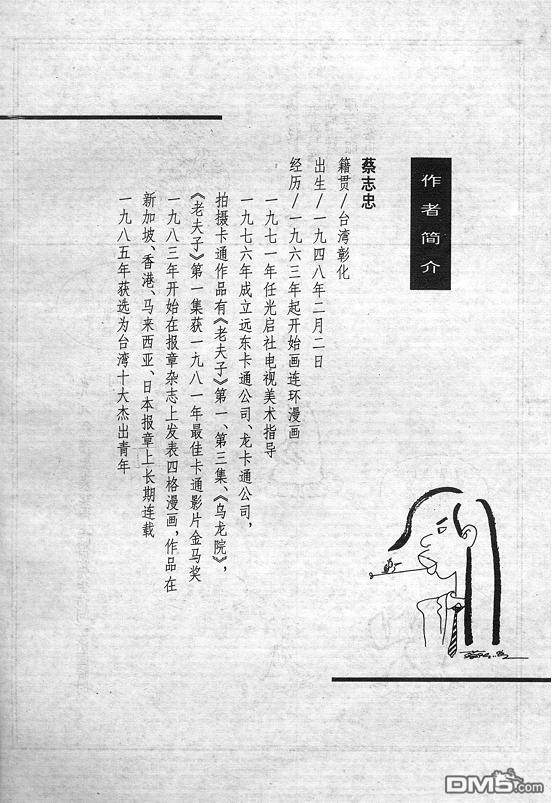 作者简介
蔡志忠
籍贯/台湾彰化
出生/一九四八年二月二日
经历/一九六三年起开始画连环漫画
一九七一年任光启社电视美术指导
一九七六年成立远东卡通公司、龙卡通公司,
拍摄卡通作品有《老夫子》第一、第三集、《乌龙院》,
《老夫子》第一集获一九八一年最佳卡通影片金马奖
一九八三年开始在报章杂志上发表四格漫画,作品在
新加坡、香港、马来西亚、日本报章上长期连载
一九八五年获选为台湾十大杰出青年
DM5.com